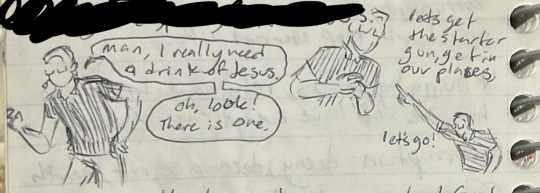 man, I really need
a drink of Jesus.
oh, look!
There is one.
lets get
the starter
gun, get in
our places,
let's go!